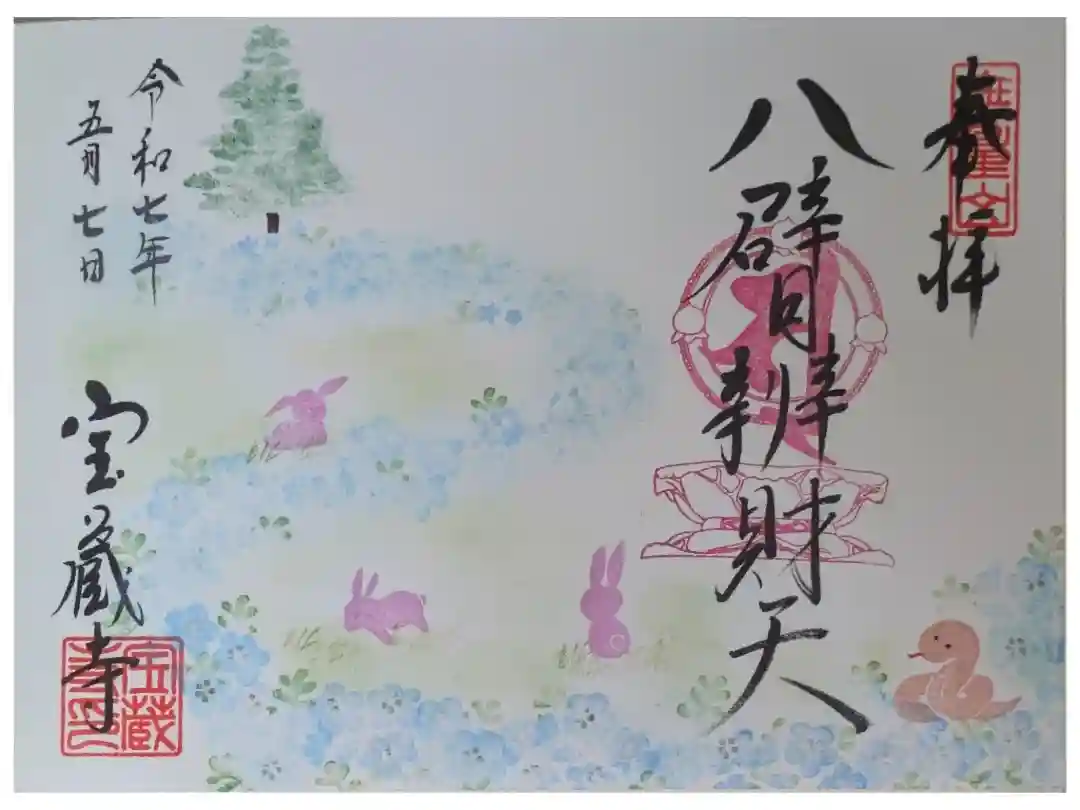 奉拝
八臂辨財天
令和七年
五月七日
宝蔵寺
宝蔵
寺印